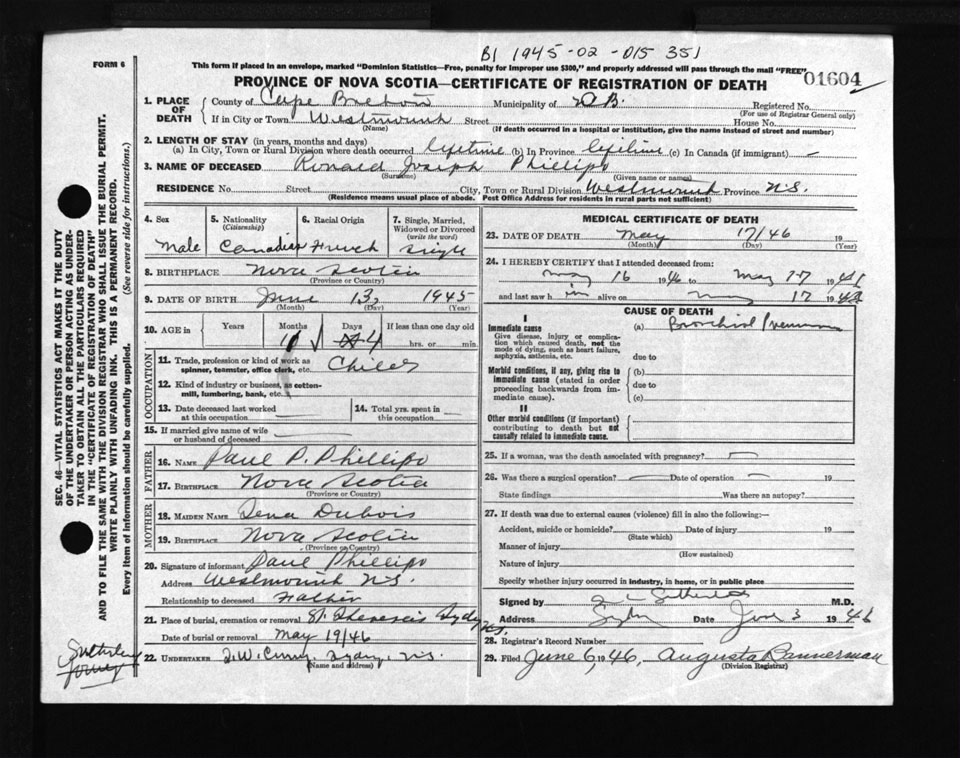 B1 1945-02-015 351
FORM 6
This form if placed in an envelope, marked "Dominion Statistics—Free, penalty for improper use $300," and properly addressed will pass through the mail "FREE"
01604
PROVINCE OF NOVA SCOTIA—CERTIFICATE OF REGISTRATION OF DEATH
1. PLACE OF DEATH
County of Cape Breton Municipality of C.B. Registered No.
(For use of Registrar General only)
If in City or Town Westmount Street House No.
(Name) (If death occurred in a hospital or institution, give the name instead of street and number)
2. LENGTH OF STAY (in years, months and days)
(a) In City, Town or Rural Division where death occurred lifetime (b) In Province lifetime (c) In Canada (if immigrant) —
3. NAME OF DECEASED Ronald Joseph Phillips
(Surname) (Given name or names)
RESIDENCE No. Street City, Town or Rural Division Westmount Province N.S.
(Residence means usual place of abode. Post Office Address for residents in rural parts not sufficient)
4. Sex
Male
5. Nationality
(Citizenship)
Canadian
6. Racial Origin
French
7. Single, Married, Widowed or Divorced
(write the word)
Single
8. BIRTHPLACE Nova Scotia
(Province or Country)
9. DATE OF BIRTH June 13, 1945
(Month) (Day) (Year)
10. AGE in Years Months Days If less than one day old
11 4 hrs. or min.
OCCUPATION
11. Trade, profession or kind of work as
spinner, teamster, office clerk, etc. Child
12. Kind of industry or business, as cotton-
mill, lumbering, bank, etc.
13. Date deceased last worked
at this occupation
14. Total yrs. spent in
this occupation
15. If married give name of wife
or husband of deceased
FATHER
16. NAME Paul P. Phillips
17. BIRTHPLACE Nova Scotia
(Province or Country)
MOTHER
18. MAIDEN NAME Lena Dubois
19. BIRTHPLACE Nova Scotia
(Province or Country)
20. Signature of informant Paul Phillips
Address Westmount N.S.
Relationship to deceased Father
21. Place of burial, cremation or removal St. Theresis Sydney N.S.
Date of burial or removal May 19/46
22. UNDERTAKER T.W. Curry, Sydney, N.S.
(Name and address)
MEDICAL CERTIFICATE OF DEATH
23. DATE OF DEATH May 17/46 19
(Month) (Day) (Year)
24. I HEREBY CERTIFY that I attended deceased from:
May 16 1946 to May 17 1946
and last saw him alive on May 17 1946
CAUSE OF DEATH
I
Immediate cause
Give disease, injury or complication which caused death, not the mode of dying, such as heart failure, asphyxia, asthenia, etc.
(a) Bronchial Pneumonia
due to
Morbid conditions, if any, giving rise to immediate cause (stated in order proceeding backwards from immediate cause).
(b)
due to
(c)
II
Other morbid conditions (if important) contributing to death but not causally related to immediate cause.
25. If a woman, was the death associated with pregnancy?
26. Was there a surgical operation? Date of operation 19
State findings Was there an autopsy?
27. If death was due to external causes (violence) fill in also the following:—
Accident, suicide or homicide? Date of injury 19
(State which)
Manner of injury
(How sustained)
Nature of injury
Specify whether injury occurred in industry, in home, or in public place
Signed by M.D.
Address Sydney Date June 3 1946
28. Registrar's Record Number
29. Filed June 6, 1946, Augusta Bannerman
(Division Registrar)
SEC. 46—VITAL STATISTICS ACT MAKES IT THE DUTY
OF THE UNDERTAKER OR PERSON ACTING AS UNDER-
TAKER TO OBTAIN ALL THE PARTICULARS REQUIRED
IN THE "CERTIFICATE OF REGISTRATION OF DEATH"
AND TO FILE THE SAME WITH THE DIVISION REGISTRAR WHO SHALL ISSUE THE BURIAL PERMIT.
WRITE PLAINLY WITH UNFADING INK. THIS IS A PERMANENT RECORD.
Every item of Information should be carefully supplied. (See reverse side for instructions.)